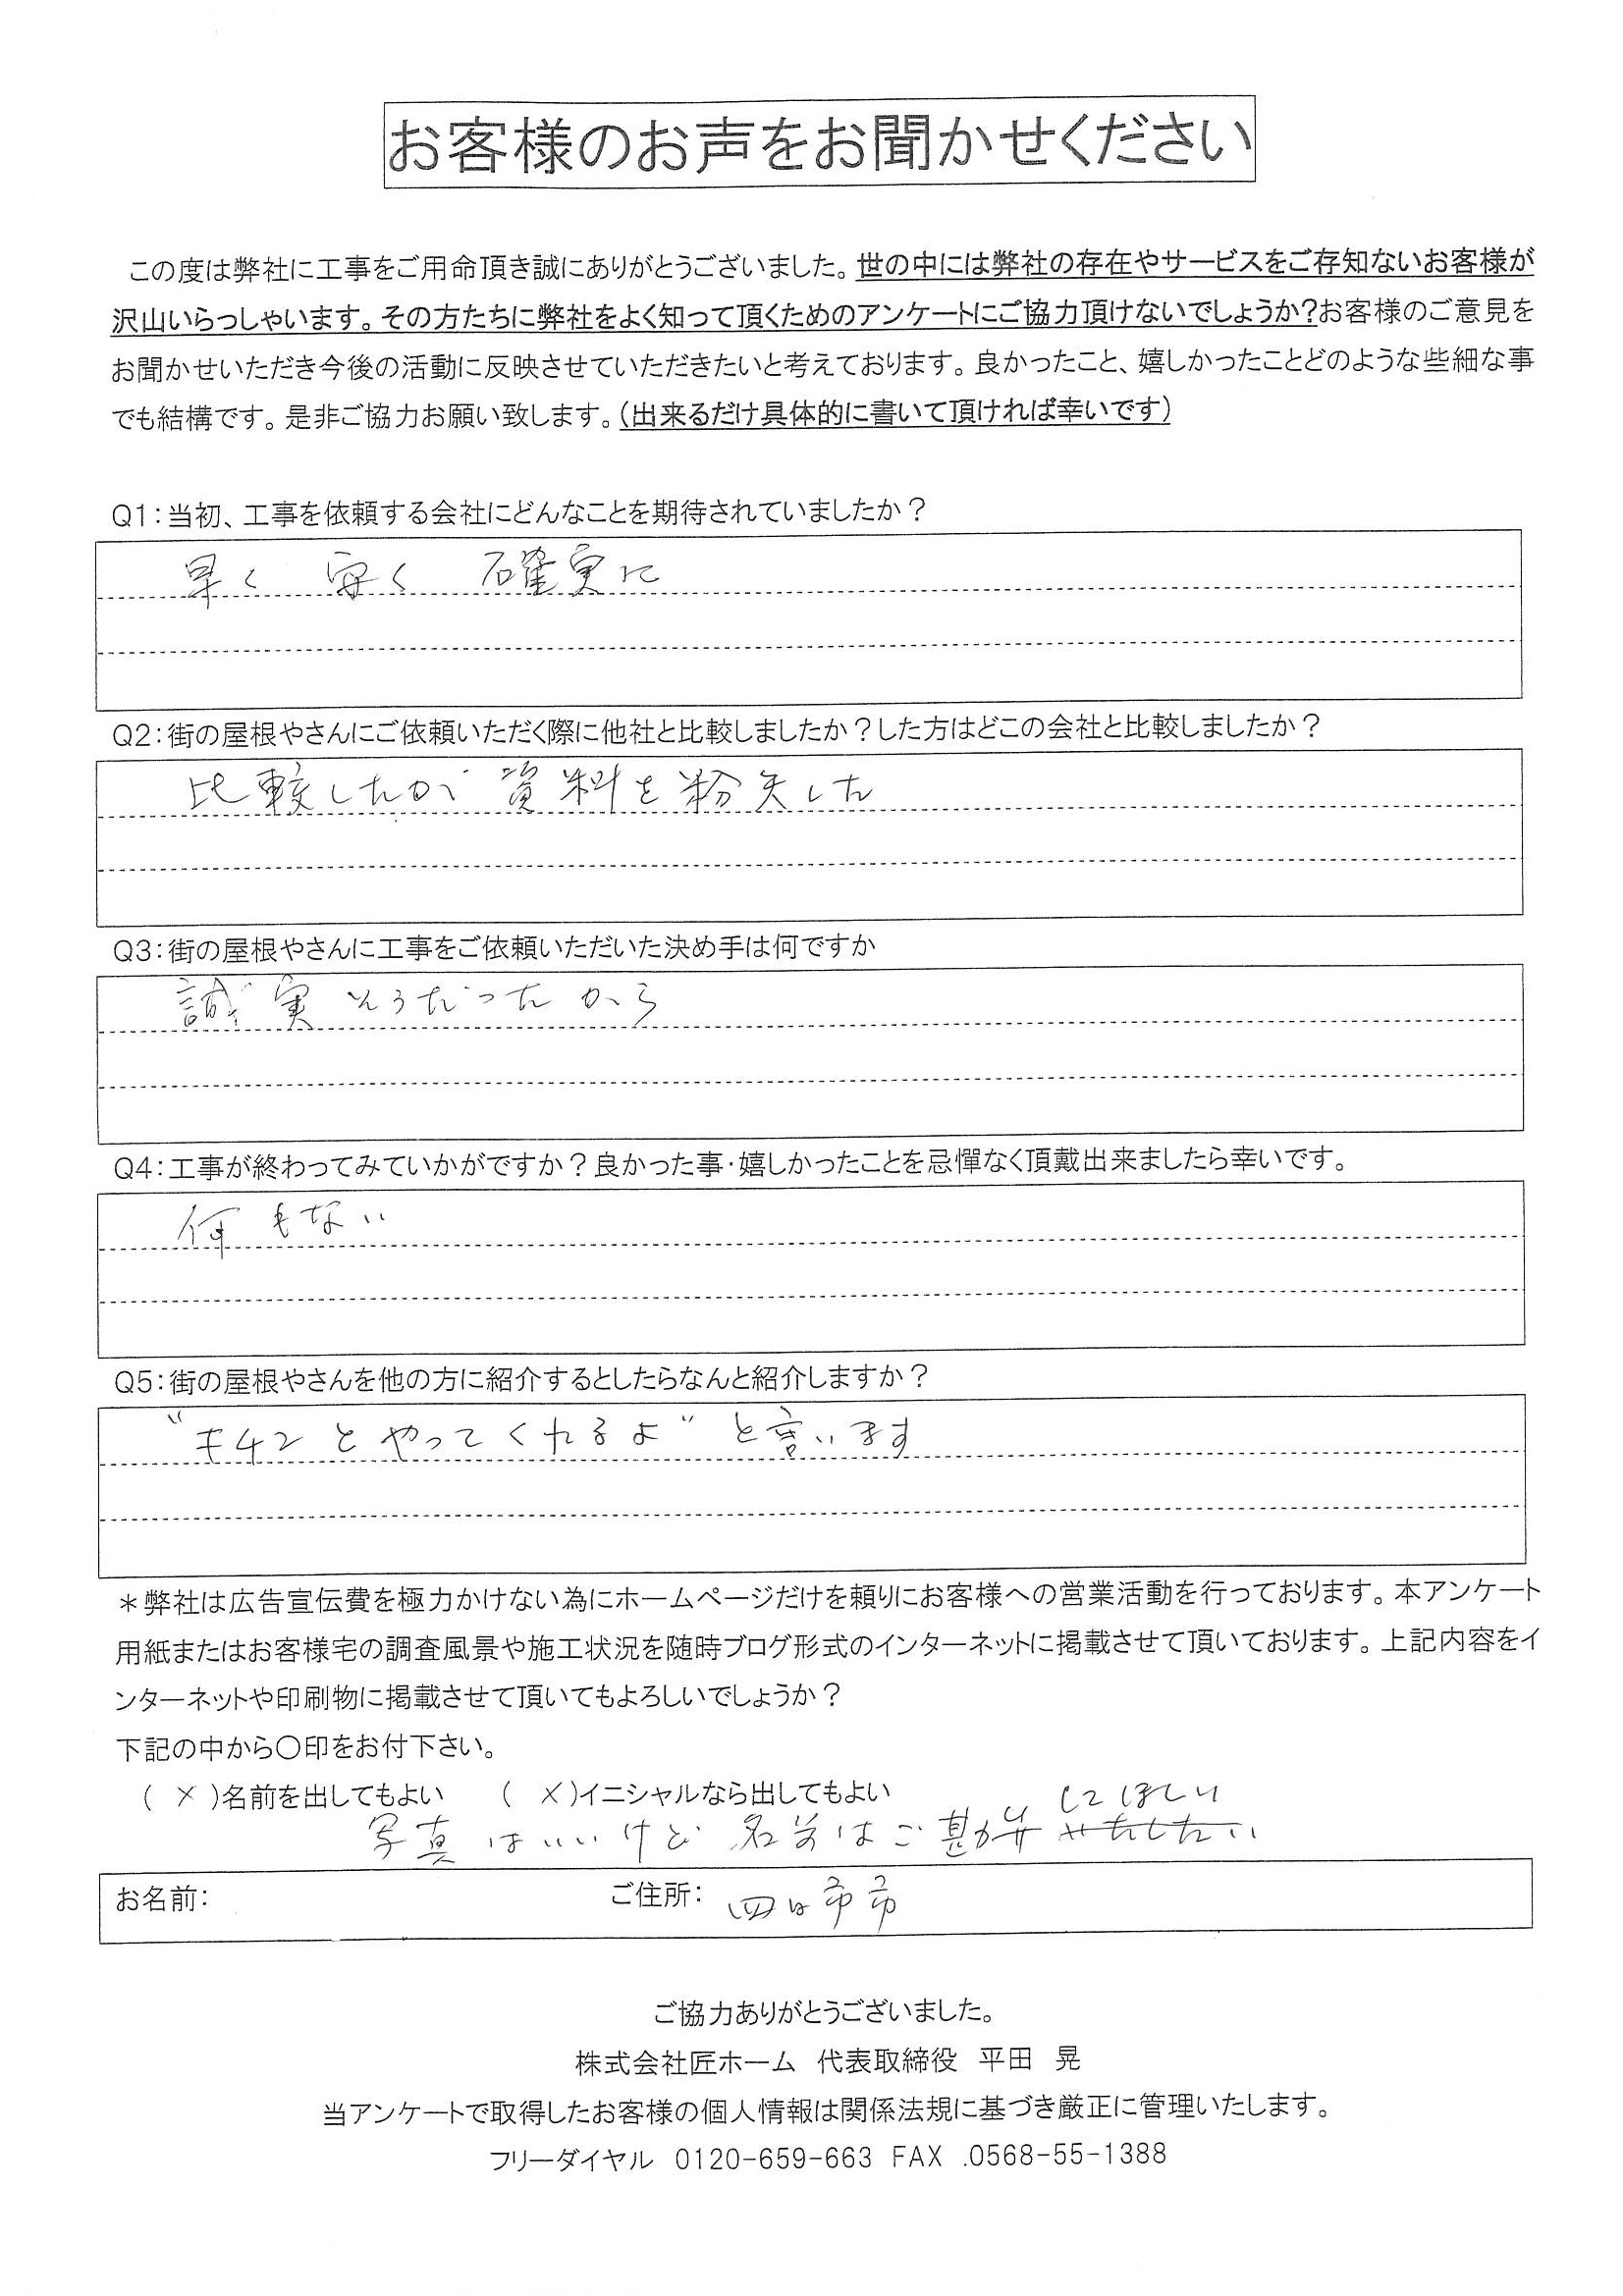 お客様のお声をお聞かせください
この度は弊社に工事をご用命頂き誠にありがとうございました。世の中には弊社の存在やサービスをご存知ないお客様が
沢山いらっしゃいます。その方たちに弊社をよく知って頂くためのアンケートにご協力頂けないでしょうか?お客様のご意見を
お聞かせいただき今後の活動に反映させていただきたいと考えております。良かったこと、嬉しかったことどのような些細な事
でも結構です。是非ご協力お願い致します。(出来るだけ具体的に書いて頂ければ幸いです)
Q1:当初、工事を依頼する会社にどんなことを期待されていましたか?
早く 安く 確実に
Q2:街の屋根やさんにご依頼いただく際に他社と比較しましたか?した方はどこの会社と比較しましたか?
比較したが 資料を紛失した
Q3:街の屋根やさんに工事をご依頼いただいた決め手は何ですか
誠実そうだったから
Q4:工事が終わってみていかがですか?良かった事・嬉しかったことを忌憚なく頂戴出来ましたら幸いです。
何もない
Q5:街の屋根やさんを他の方に紹介するとしたらなんと紹介しますか?
"キチンとやってくれるよ"と言います
*弊社は広告宣伝費を極力かけない為にホームページだけを頼りにお客様への営業活動を行っております。本アンケート
用紙またはお客様宅の調査風景や施工状況を随時ブログ形式のインターネットに掲載させて頂いております。上記内容をイ
ンターネットや印刷物に掲載させて頂いてもよろしいでしょうか?
下記の中から〇印をお付下さい。
( × )名前を出してもよい ( × )イニシャルなら出してもよい
写真はいいけど 名前はご勘弁 してほしい
お名前: ご住所: 四日市市
ご協力ありがとうございました。
株式会社匠ホーム 代表取締役 平田 晃
当アンケートで取得したお客様の個人情報は関係法規に基づき厳正に管理いたします。
フリーダイヤル 0120-659-663 FAX .0568-55-1388